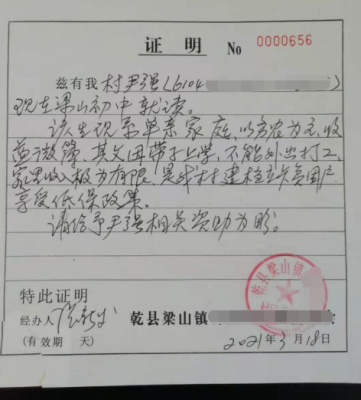 证 明 No 0000656
兹有我村尹强(6104
现在梁山初中就读。
该生现系单亲家庭,以务农为主,收
益微薄,其父因带子上学,不能外出打工,
家里收入极为有限,是我村建档立卡贫困户,
享受低保政策。
请给予尹强相关资助为盼。
特此证明
经办人
乾县梁山镇
(有效期 天)
2021年3月18日
乾县梁山镇